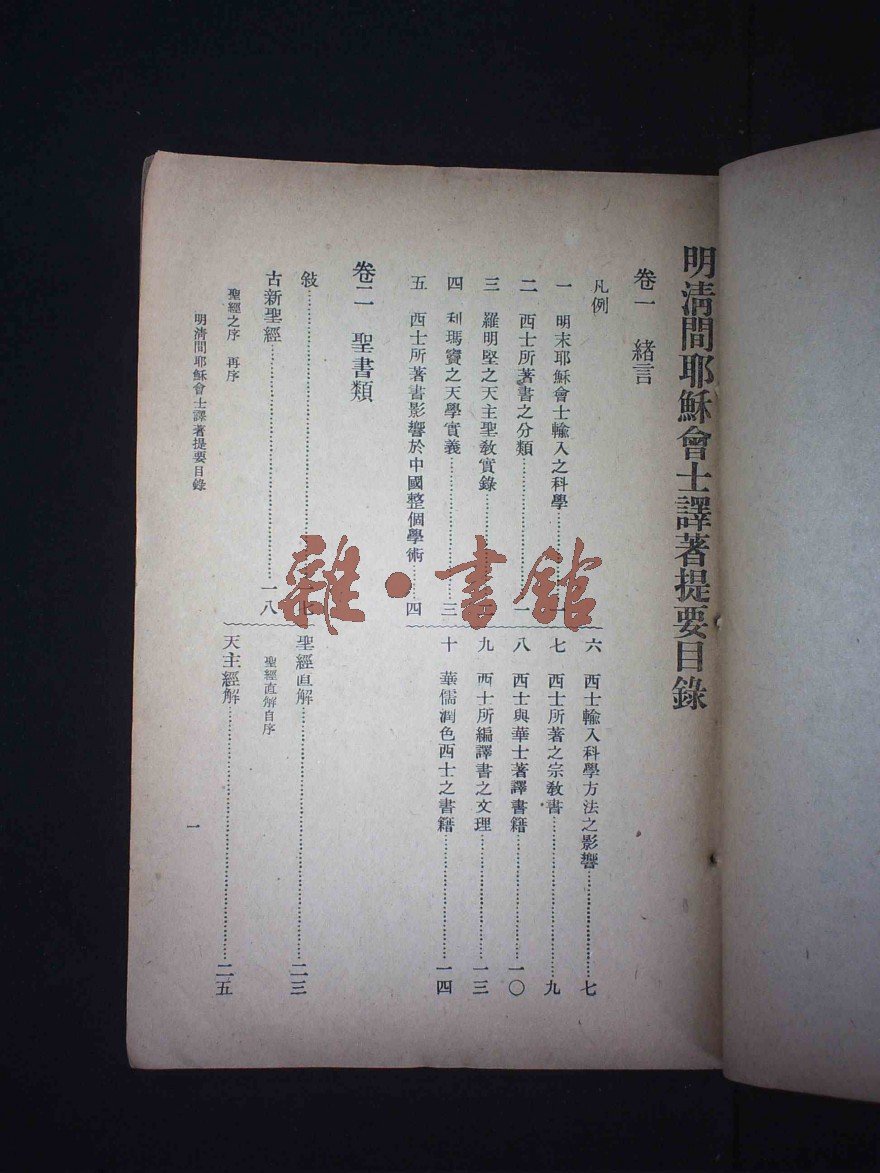 明清間耶穌會士譯著提要目錄
卷一　緒言
凡例
一　明末耶穌會士輸入之科學……一
二　西士所著書之分類……一
三　羅明堅之天主聖教實錄……
四　利瑪竇之天學實義……三
五　西士所著書影響於中國整個學術……四
六　西士輸入科學方法之影響……七
七　西士所著之宗教書……九
八　西士與華士著譯書籍……一〇
九　西士所編譯書之文理……一三
十　華儒潤色西士之書籍……一四
卷二　聖書類
敍……一七
古新聖經……一八
聖經之序　再序
聖經直解……二三
聖經直解自序
天主經解……二五
明清間耶穌會士譯著提要目錄
一
雜·書館